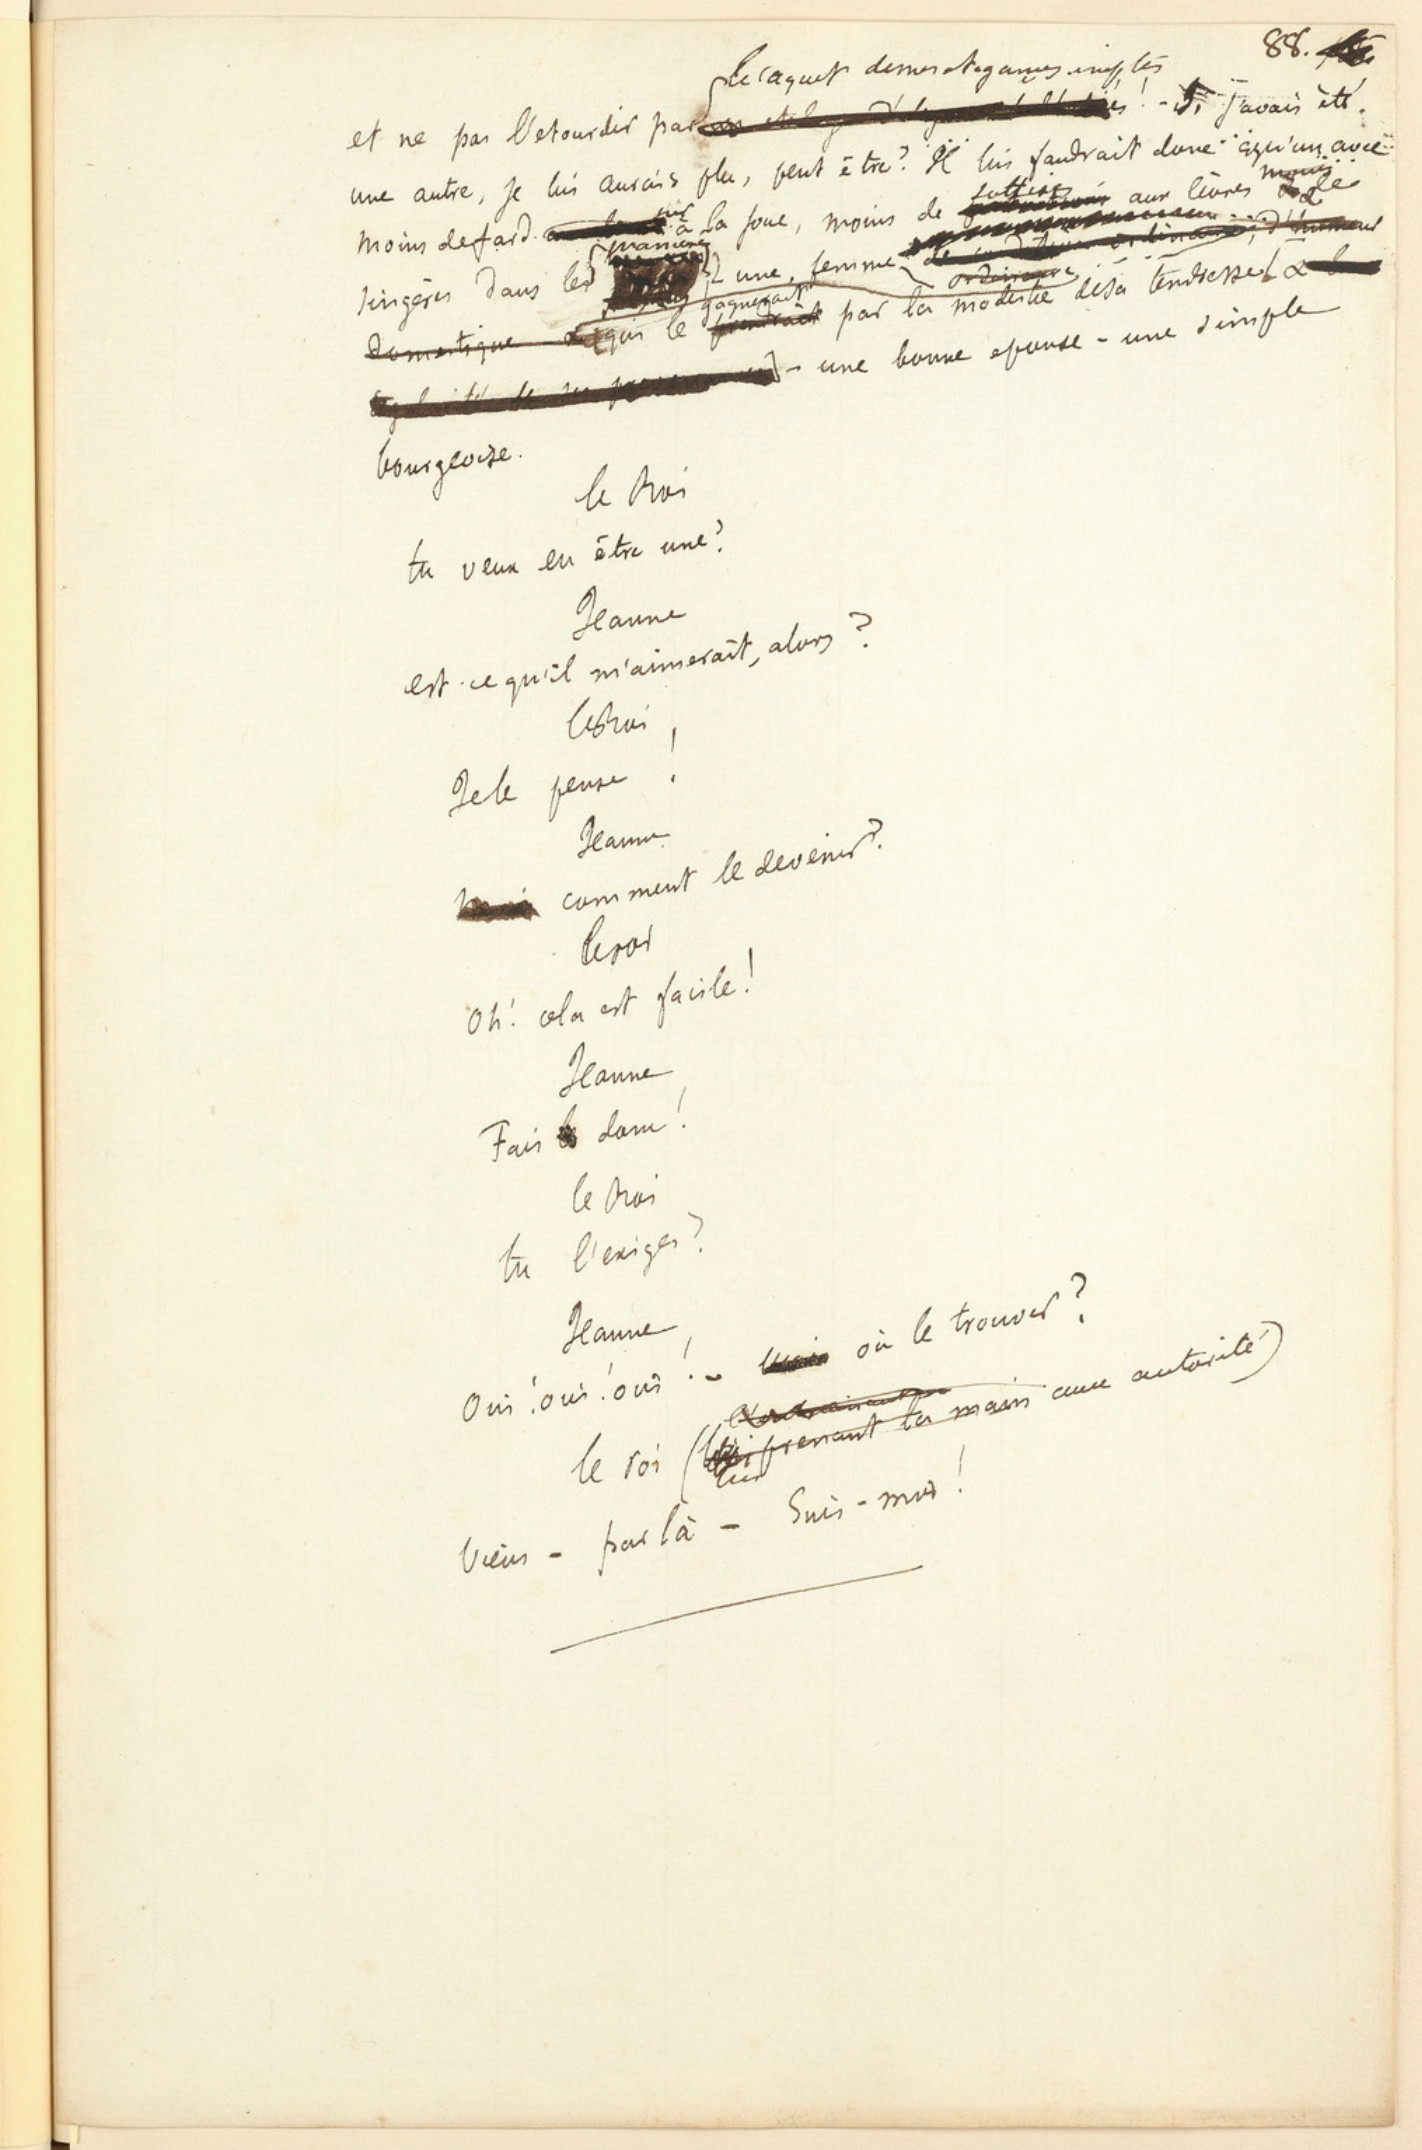 88.
le caquet de mes stagames ineptes
et ne pas l'etourdir par ! - Si j'avais été
une autre, je lui aurais plu, peut être? Il lui faudrait donc quelqu'un avec
moins de fard sur la joue, moins de sottises aux lèvres moins de
singeries dans les manières une femme ordinaire
domestique qui le gagnerait par la modestie de sa tendresse
- une bonne epouse - une simple
bourgeoise.
le Roi
tu veux en être une?
Jeanne
est-ce qu'il m'aimerait, alors?
le Roi
Je le pense!
Jeanne
mais comment le devenir?
le roi
Oh! cela est facile!
Jeanne
Fais donc!
le Roi
tu l'exiges?
Jeanne
Oui! oui! oui! - mais où le trouver?
l'entrainant
le roi (lui prenant la main avec autorité)
Viens - par là - Suis-moi!